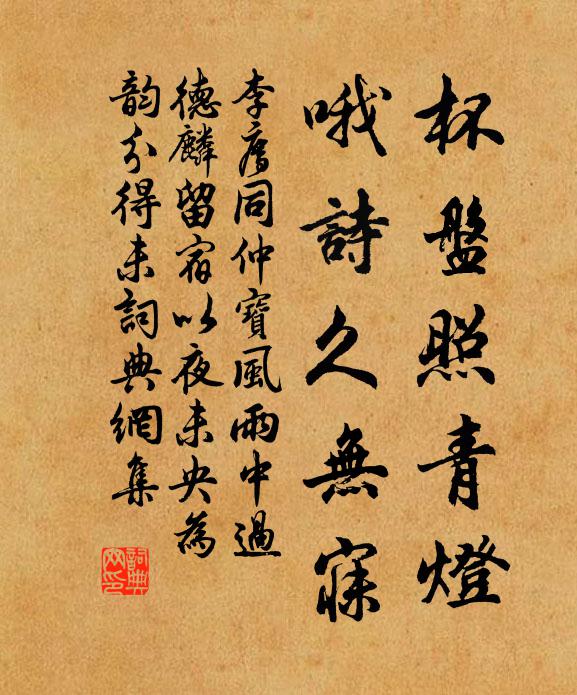 杯盤照青燈
哦詩久無寐
李廌同仲寶風雨中過
德麟留宿以夜未央為
韵分得未詞典網集
詞典
网印